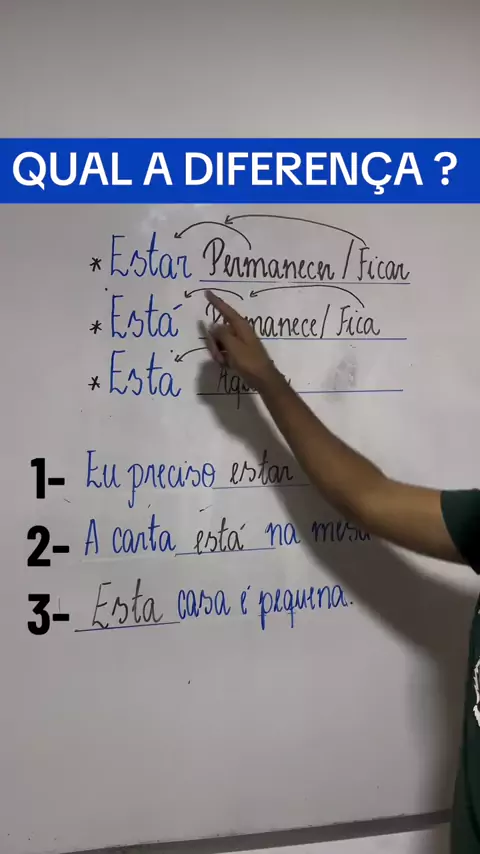 QUAL A DIFERENÇA ?
* Estar Permanecer / Ficar
* Está Permanece / Fica
* Esta
1- Eu preciso estar
2- A carta está na mesa
3- Esta casa é pequena.